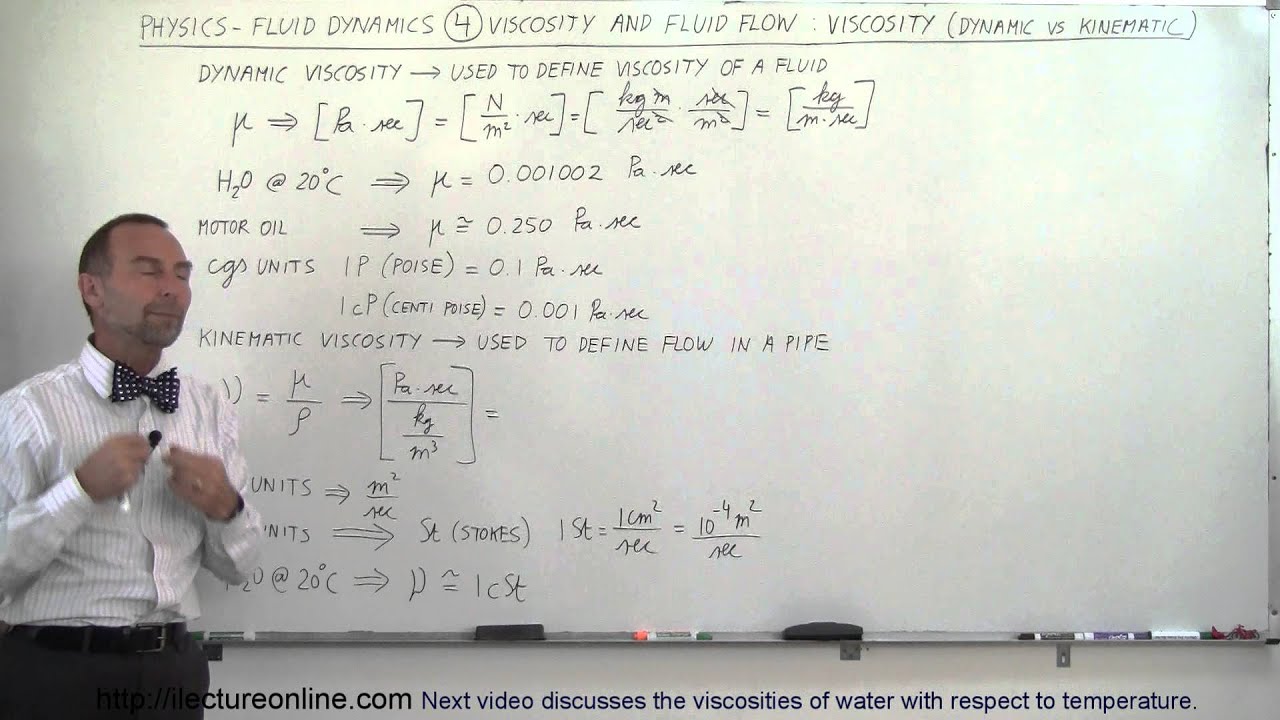 PHYSICS - FLUID DYNAMICS ④ VISCOSITY AND FLUID FLOW : VISCOSITY (DYNAMIC VS KINEMATIC)
DYNAMIC VISCOSITY → USED TO DEFINE VISCOSITY OF A FLUID
μ ⇒ [Pa·sec] = [N/m²·sec] = [kg m/sec²·sec/m²] = [kg/m·sec]
H₂O @ 20°C ⇒ μ = 0.001002 Pa·sec
MOTOR OIL ⇒ μ ≅ 0.250 Pa·sec
cgs UNITS 1P (POISE) = 0.1 Pa·sec
1cP (CENTI POISE) = 0.001 Pa·sec
KINEMATIC VISCOSITY → USED TO DEFINE FLOW IN A PIPE
ν = μ/ρ ⇒ [Pa·sec/kg/m³] =
UNITS ⇒ m²/sec
UNITS ⇒ St (STOKES) 1St = 1cm²/sec = 10⁻⁴m²/sec
H₂O @ 20°C ⇒ ν ≅ 1cSt
http://ilectureonline.com Next video discusses the viscosities of water with respect to temperature.